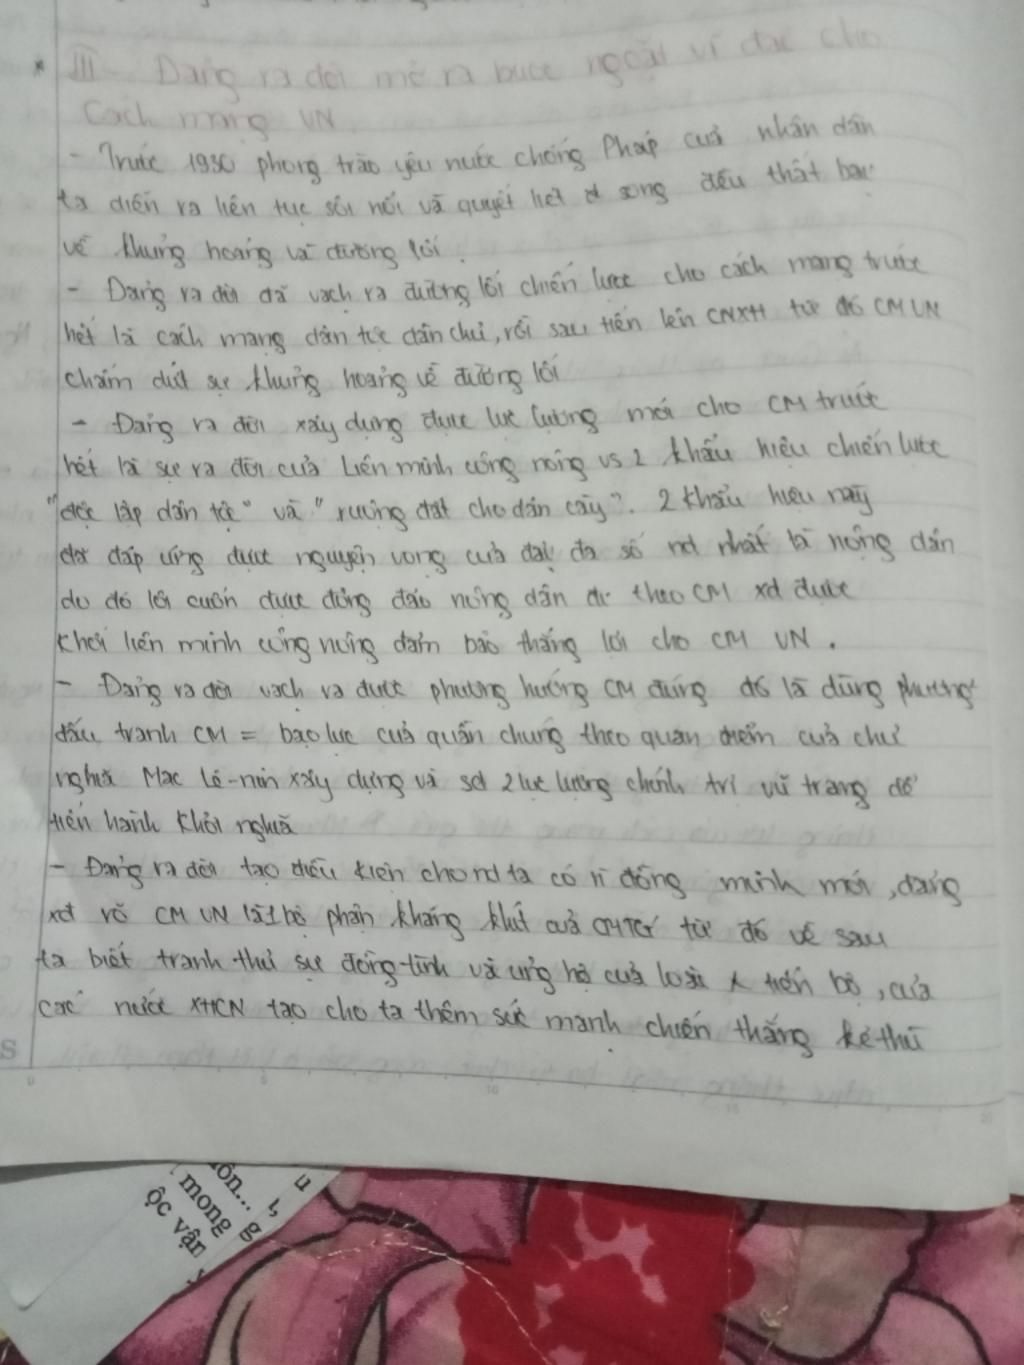 * III - Đảng ra đời mở ra bước ngoặt vĩ đại cho
Cách mạng VN
- Trước 1930 phong trào yêu nước chống Pháp của nhân dân
ta diễn ra liên tục sôi nổi và quyết liệt song đều thất bại
về khủng hoảng về đường lối.
- Đảng ra đời đã vạch ra đường lối chiến lược cho cách mạng trước
hết là cách mạng dân tộc dân chủ, rồi sau tiến lên CNXH từ đó CM VN
chấm dứt sự khủng hoảng về đường lối
- Đảng ra đời xây dựng được lực lượng mới cho CM trước
hết là sự ra đời của Liên minh công nông vs 2 khẩu hiệu chiến lược
"độc lập dân tộc" và "ruộng đất cho dân cày". 2 khẩu hiệu này
đã đáp ứng được nguyện vọng của đại đa số nd nhất là nông dân
do đó lôi cuốn được đông đảo nông dân đi theo CM xd được
khối liên minh công nông đảm bảo thắng lợi cho CM VN.
- Đảng ra đời vạch ra được phương hướng CM đúng đó là dùng phương
đấu tranh CM = bạo lực của quần chúng theo quan điểm của chủ
nghĩa Mac Lê-nin xây dựng và sd 2 lực lượng chính trị vũ trang để
tiến hành khởi nghĩa
- Đảng ra đời tạo điều kiện cho nd ta có đồng minh mới, đảng
xđ rõ CM VN là 1 bộ phận khăng khít của CMTG từ đó về sau
ta biết tranh thủ sự đồng tình và ủng hộ của loài tiến bộ, của
các nước XHCN tạo cho ta thêm sức mạnh chiến thắng kẻ thù
S
0 5 10 15 20
ôn...
mong
ộc vận
u
g